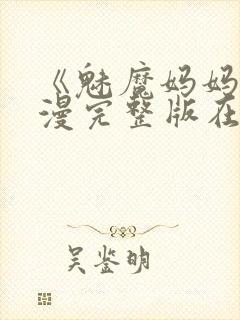 《魅魔妈妈
漫完整版在
吴鉴明